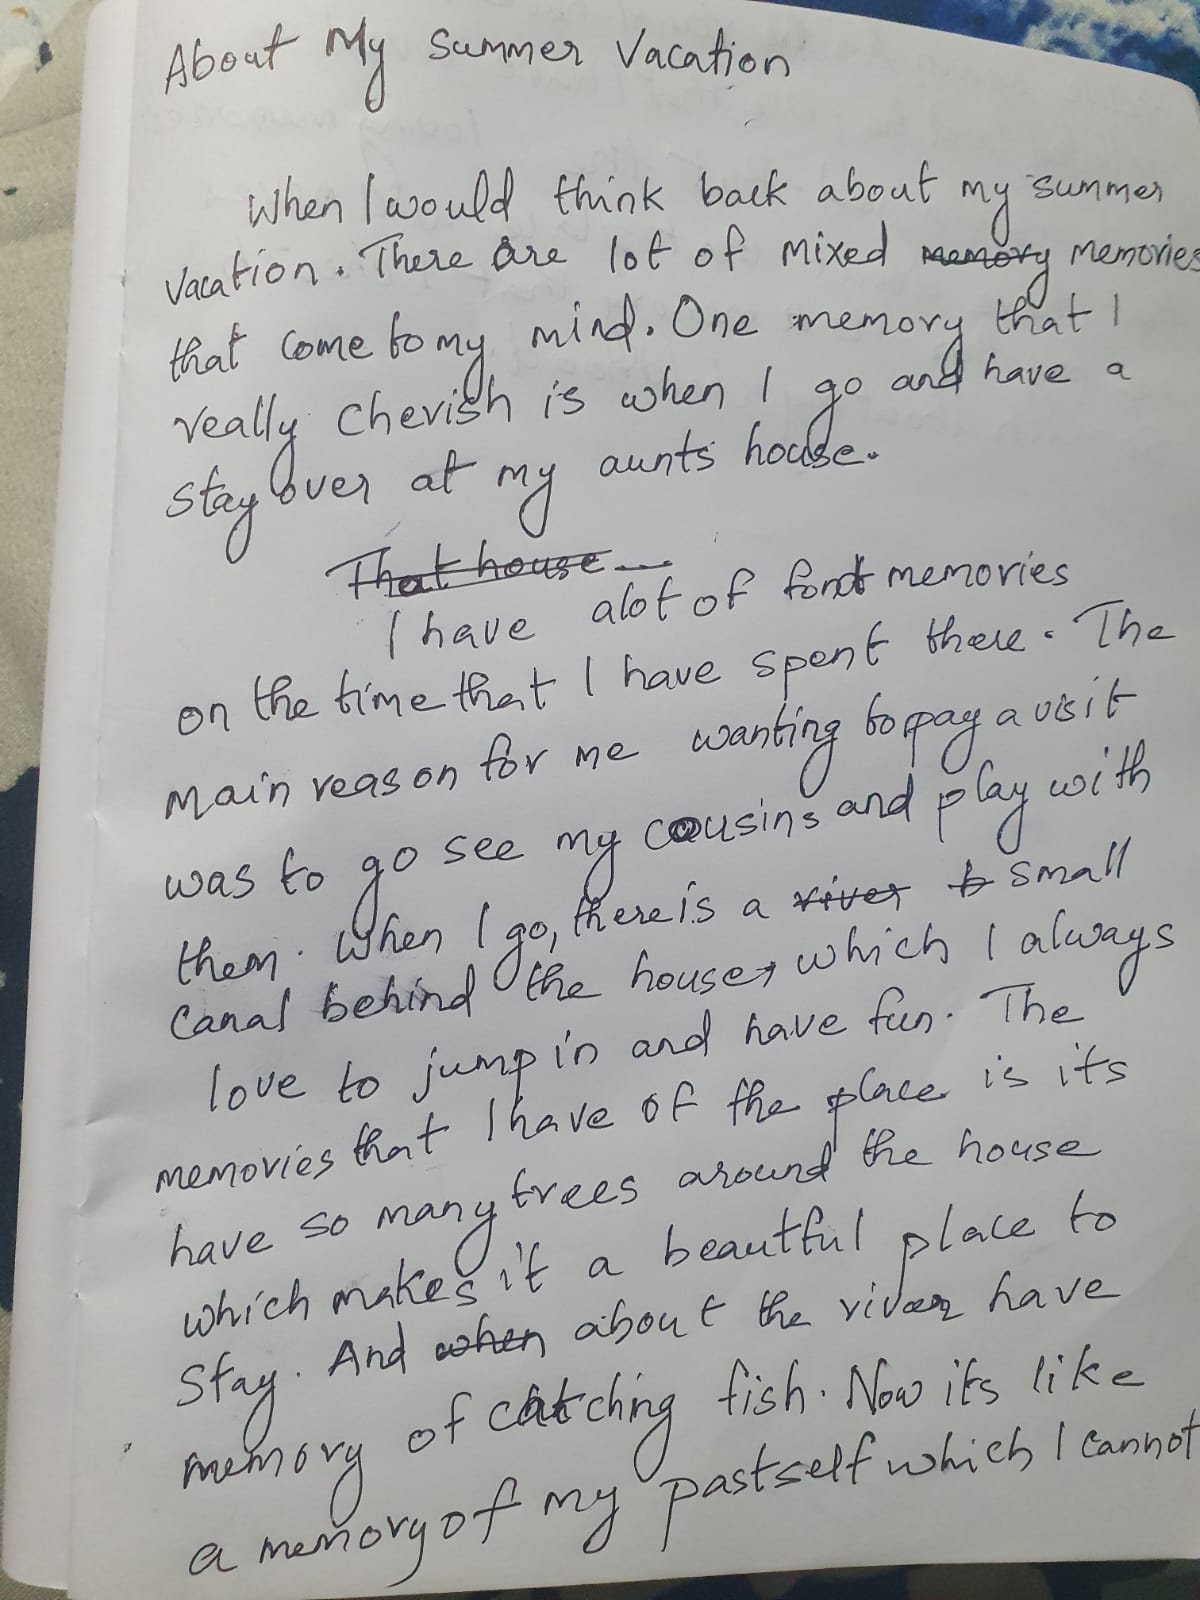 About My Summer Vacation
When I would think back about my summer
vacation. There are lot of mixed memory memories
that come to my mind. One memory that I
really cherish is when I go and have a
stay over at my aunts house.
That house
I have alot of fond memories
on the time that I have spent there. The
main reason for me wanting to pay a visit
was to go see my cousins and play with
them. When I go, there is a river b small
canal behind the house, which I always
love to jump in and have fun. The
memories that I have of the place is its
have so many trees around the house
which makes it a beautful place to
stay. And when about the river have
memory of catching fish. Now its like
a memory of my past self which I cannot